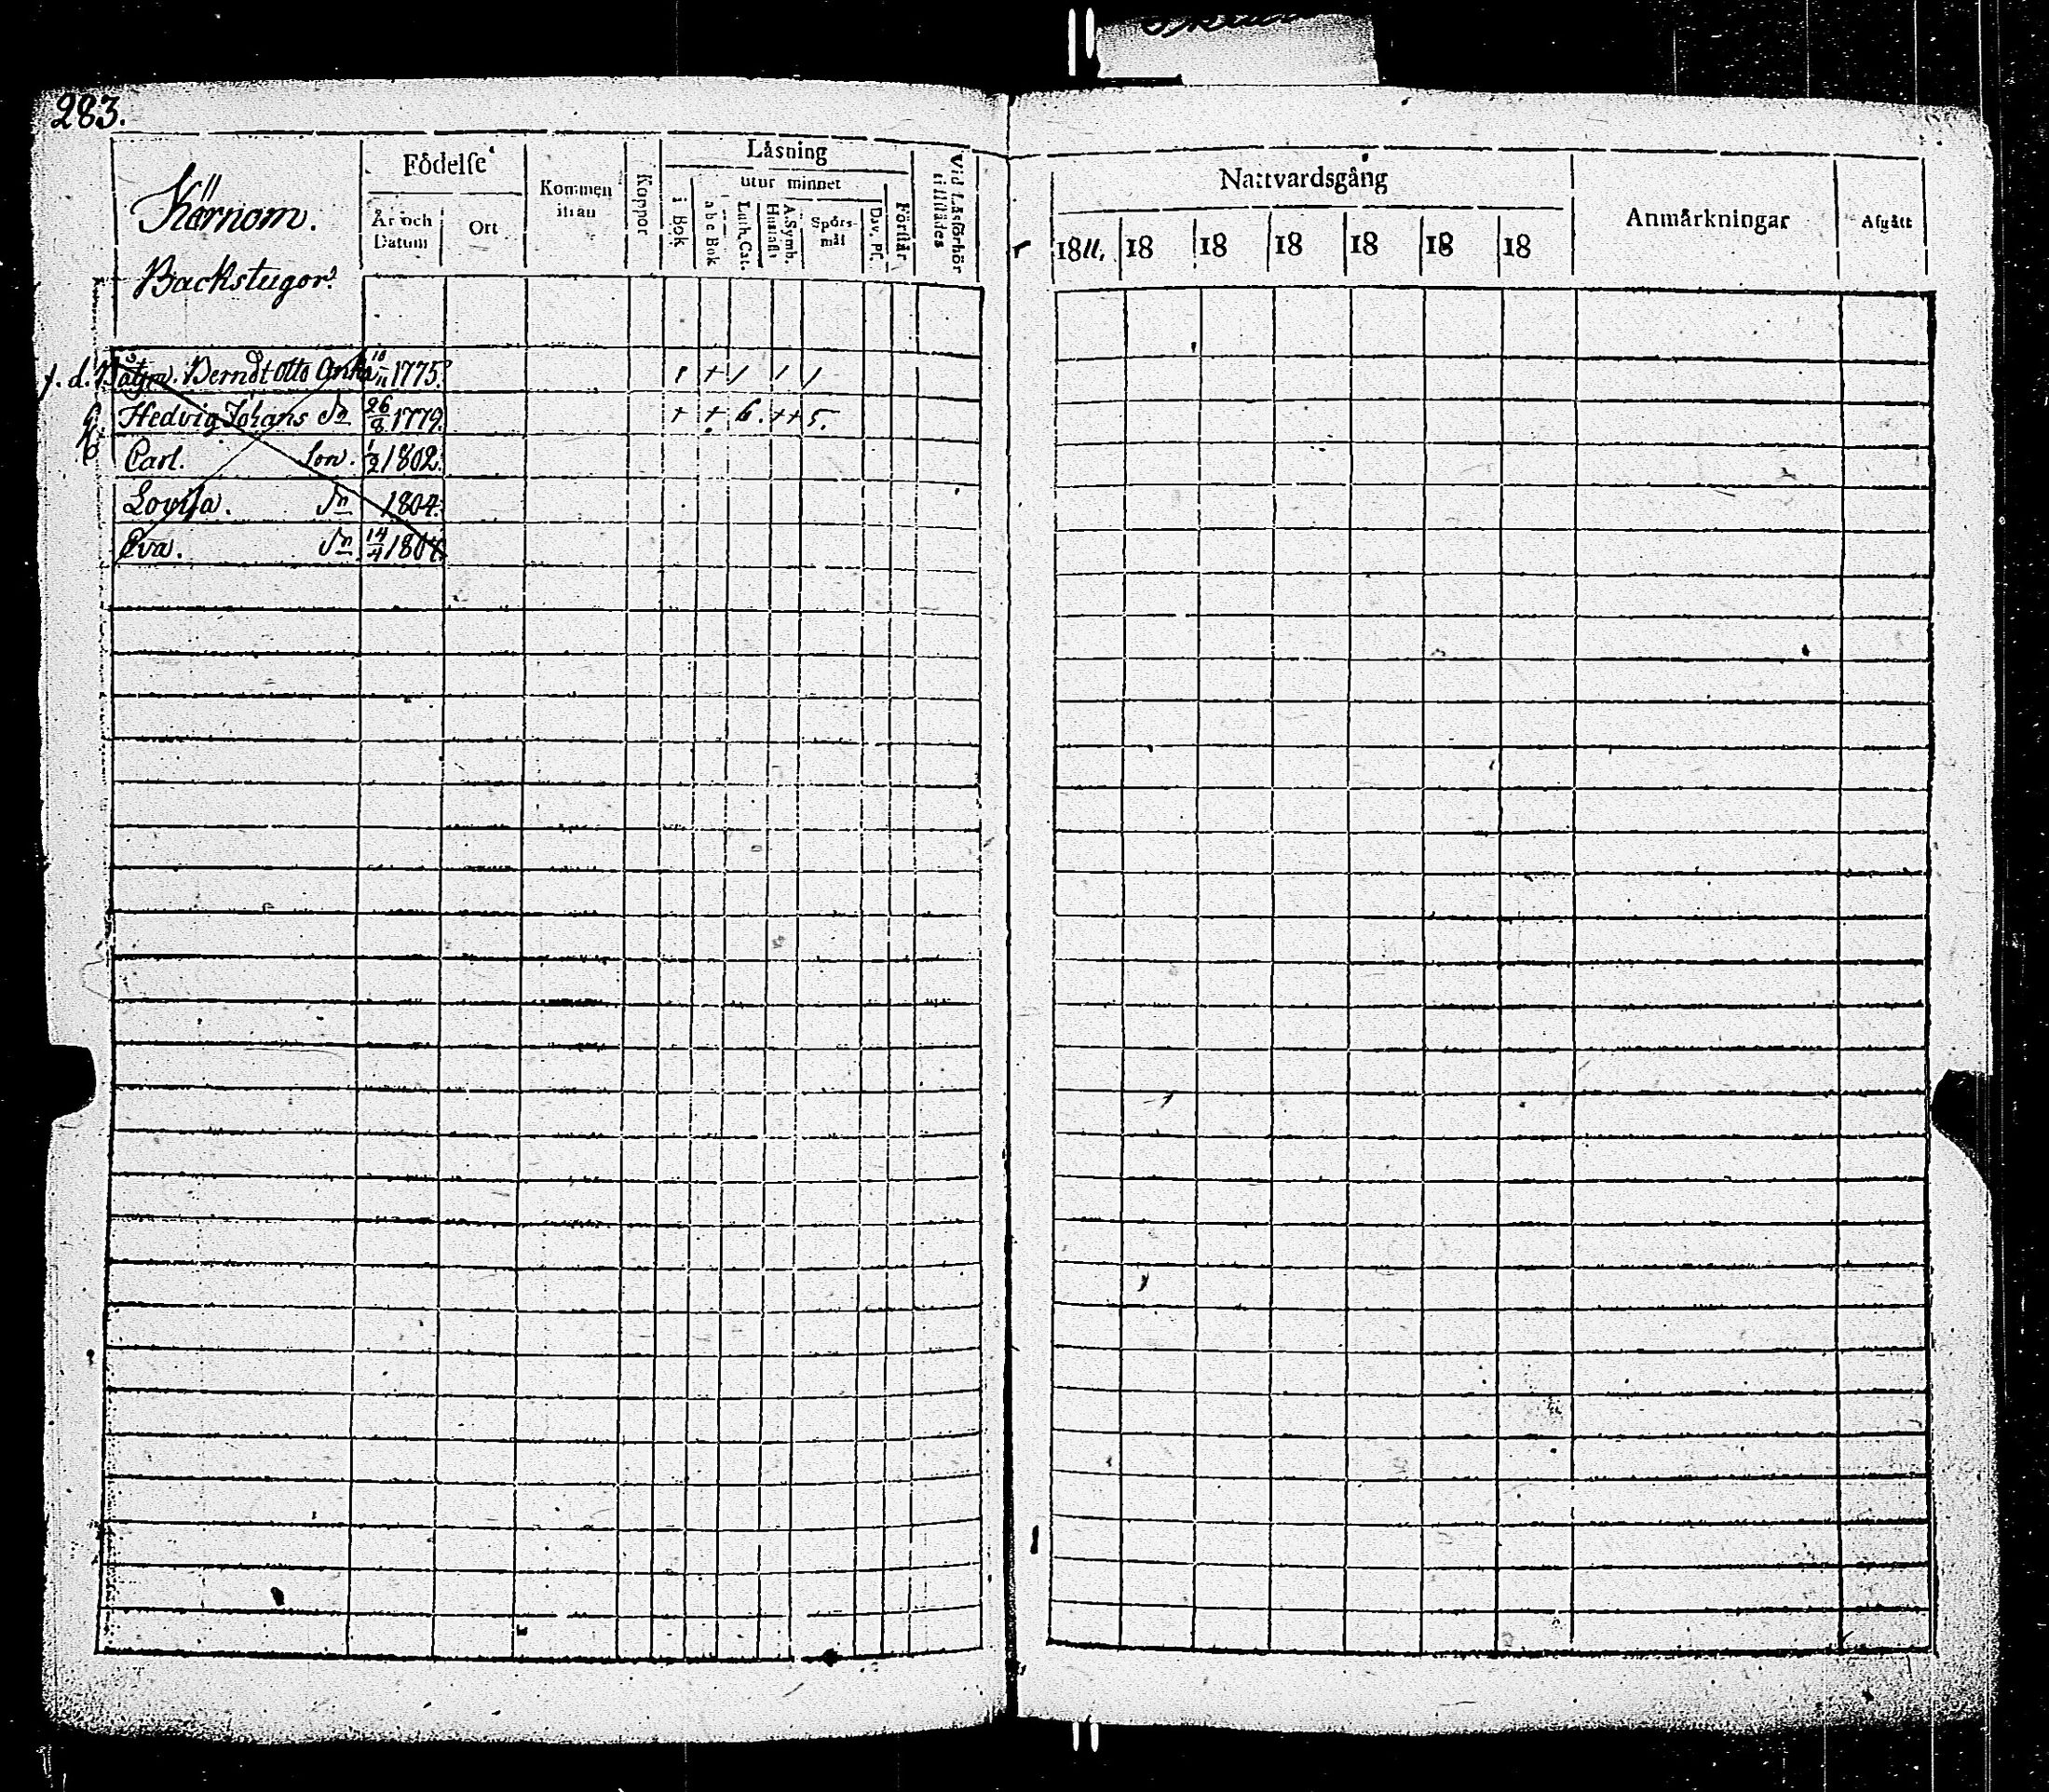 283.
Kärnom.
Backstugor.
Födelse
År och Datum
Ort
Kommen ifrån
Koppor
Läsning
utur minnet
i Bok
a b c Bok
Luth. Cat.
A. Symb. Hustafl.
Spörsmål
Dav. Ps.
Förstår
Vid Läsförhör tillstädes
Nattvardsgång
1811. 18 18 18 18 18 18
Anmärkningar
Afgått
f. d. Båtsm. Berndt Otto 10/11 1775. + / / /
h. Hedvig Johans Dr 26/8 1779. + + 6. ++ 5.
Carl. Son. 1/2 1802.
Lovisa. Dr 1804.
Eva. Dr 14/4 1807.